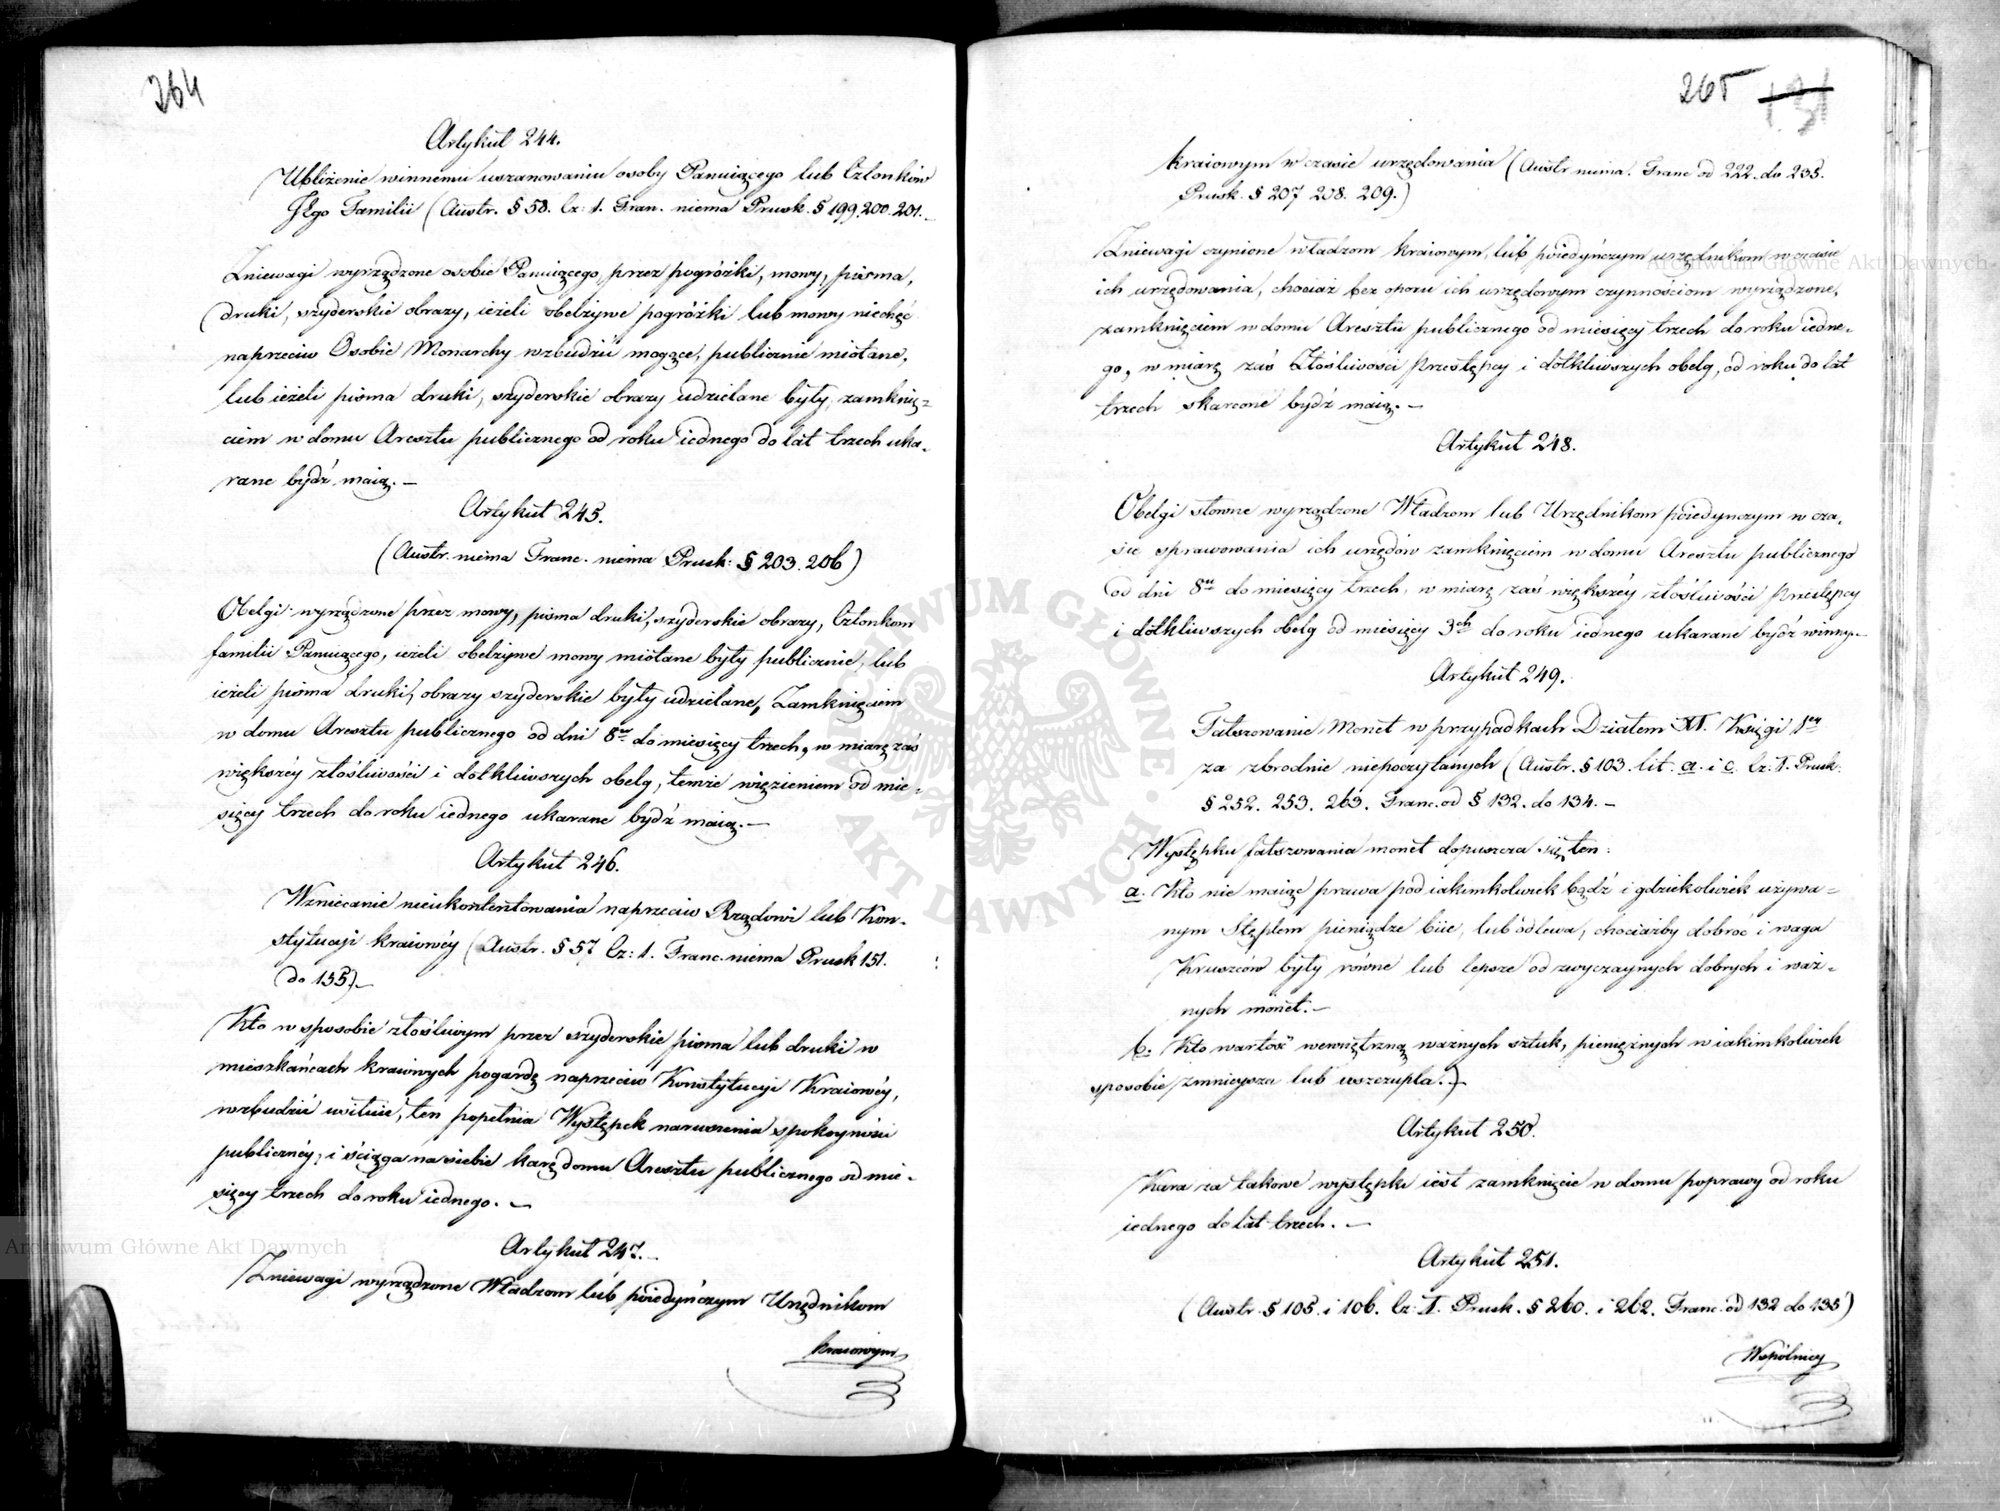 264
Artykuł 244.
Ubliżenie winnemu uszanowaniu osoby Panuiącego lub Członków
Jego Familii (Austr. § 58. Cz: 1. Fran. niema Prusk. § 199. 200. 201.
Zniewagi wyrządzone osobie Panuiącego, przez pogróżki, mowy, pisma,
druki, szyderskie obrazy, ieżeli obelżywe pogróżki lub mowy niechęć
naprzeciw Osobie Monarchy wzbudzić mogące, publicznie miotane,
lub ieżeli pisma druki, szyderskie obrazy udzielane były, zamknię=
ciem w domu Aresztu publicznego od roku iednego do lat trzech uka-
rane bydź maią. —
Artykuł 245.
(Austr. niema Franc. niema Prusk: § 203. 206)
Obelgi wyrządzone przez mowy, pisma druki, szyderskie obrazy, Członkom
familii Panuiącego, ieżeli obelżywe mowy miotane były publicznie, lub
ieżeli pisma druki, obrazy szyderskie były udzielane, Zamknięciem
w domu Aresztu publicznego od dni 8miu do miesięcy trzech, w miarę zaś
większéy złośliwości i dotkliwszych obelg, temże więzieniem od mie-
sięcy trzech do roku iednego ukarane bydź maią. —
Artykuł 246.
Wzniecanie nieukontentowania naprzeciw Rządowi lub Kon-
stytucyi kraiowéy (Austr. § 57 Cz: 1. Franc. niema Prusk 151.
do 155). —
Kto w sposobie złośliwym przez szyderskie pisma lub druki w
mieszkańcach kraiowych pogardę naprzeciw Konstytucyi Kraiowéy,
wzbudzić usiłuie, ten popełnia Występek naruszenia spokoyności
publicznéy, i ściąga na siebie karę domu Aresztu publicznego od mie-
sięcy trzech do roku iednego. —
Artykuł 247. —
Zniewagi wyrządzone Władzom lub poiedyńczym Urzędnikom
kraiowym
265 131
kraiowym w czasie urzędowania (Austr niema. Franc od 222. do 235.
Prusk. § 207 208. 209.)
Zniewagi czynione władzom kraiowym, lub poiedyńczym urzędnikom w czasie
ich urzędowania, chociaż bez oporu ich urzędowym czynnościom wyrządzone,
zamknięciem w domu Aresztu publicznego od miesięcy trzech do roku iedne-
go, w miarę zaś Złośliwości Przestępcy i dotkliwszych obelg, od roku do lat
trzech skarcone bydź maią. —
Artykuł 248.
Obelgi słowne wyrządzone Władzom lub Urzędnikom poiedynczym w cza-
sie sprawowania ich urzędów zamknięciem w domu Aresztu publicznego
od dni 8miu do miesięcy trzech, w miarę zaś większéy złośliwości Przestępcy
i dotkliwszych obelg od miesięcy 3ch do roku iednego ukarane bydź winny. —
Artykuł 249.
Fałszowanie Monet w przypadkach Działem XI. Księgi 1ey
za zbrodnie niepoczytanych (Austr. § 103. lit. a. i c. Cz: 1. Prusk:
§ 252. 253. 263. Franc. od § 132. do 134. —
Występku fałszowania monet dopuszcza się ten:
a. Kto nie maiąc prawa pod iakimkolwiek bądź i gdziekolwiek używa=
nym Stęplem pieniądze biie, lub odlewa, chociażby dobroć i waga
Kruszców były równe lub lepsze od zwyczaynych dobrych i waż=
nych monet. —
b. Kto wartość wewnętrzną ważnych sztuk, pieniężnych w iakimkolwiek
sposobie zmnieysza lub uszczupla. —
Artykuł 250.
Kara za takowe występki iest zamknięcie w domu poprawy od roku
iednego do lat trzech. —
Artykuł 251.
(Austr. § 105. i 106. Cz: 1. Prusk. § 260. i 262. Franc. od 132 do 135)
Wspólnicy
ARCHIWUM GŁÓWNE AKT DAWNYCH
Archiwum Główne Akt Dawnych
Archiwum Główne Akt Dawnych